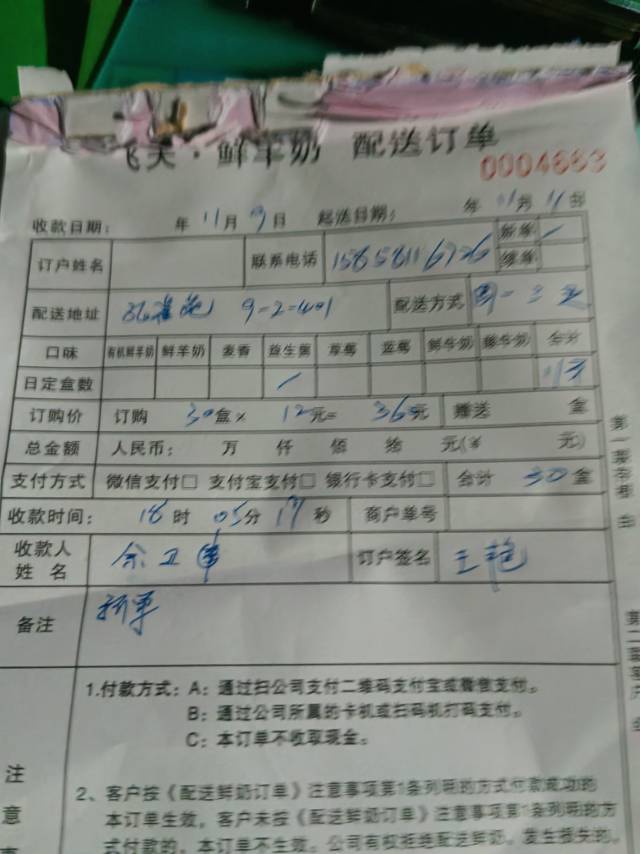 飞天·鲜羊奶 配送订单
0004663
收款日期: 年 11月 9日 起送日期: 年 11月 11日
新单
订户姓名 联系电话 15858116726 续单
配送地址 9-2-401 配送方式 周一三五
口味 有机鲜羊奶 鲜羊奶 麦香 益生菌 草莓 蓝莓 鲜牛奶 酸牛奶 合计
日定盒数
订购价 订购 30盒× 12元= 360元 赠送 盒
总金额 人民币: 万 仟 佰 拾 元(¥ 元)
支付方式 微信支付□ 支付宝支付□ 银行卡支付□ 合计 30盒
收款时间: 18时 05分 17秒 商户单号
收款人
姓 名 余卫 订户签名 王艳
备注 新单
1.付款方式: A: 通过扫公司支付二维码支付宝或微信支付。
B: 通过公司所属的卡机或扫码机打码支付。
C: 本订单不收取现金。
注
意
2、客户按《配送鲜奶订单》注意事项第1条列明的方式付款成功的
本订单生效,客户未按《配送鲜奶订单》注意事项第1条列明的方
式付款的,本订单不生效。公司有权拒绝配送鲜奶,发生损失的,